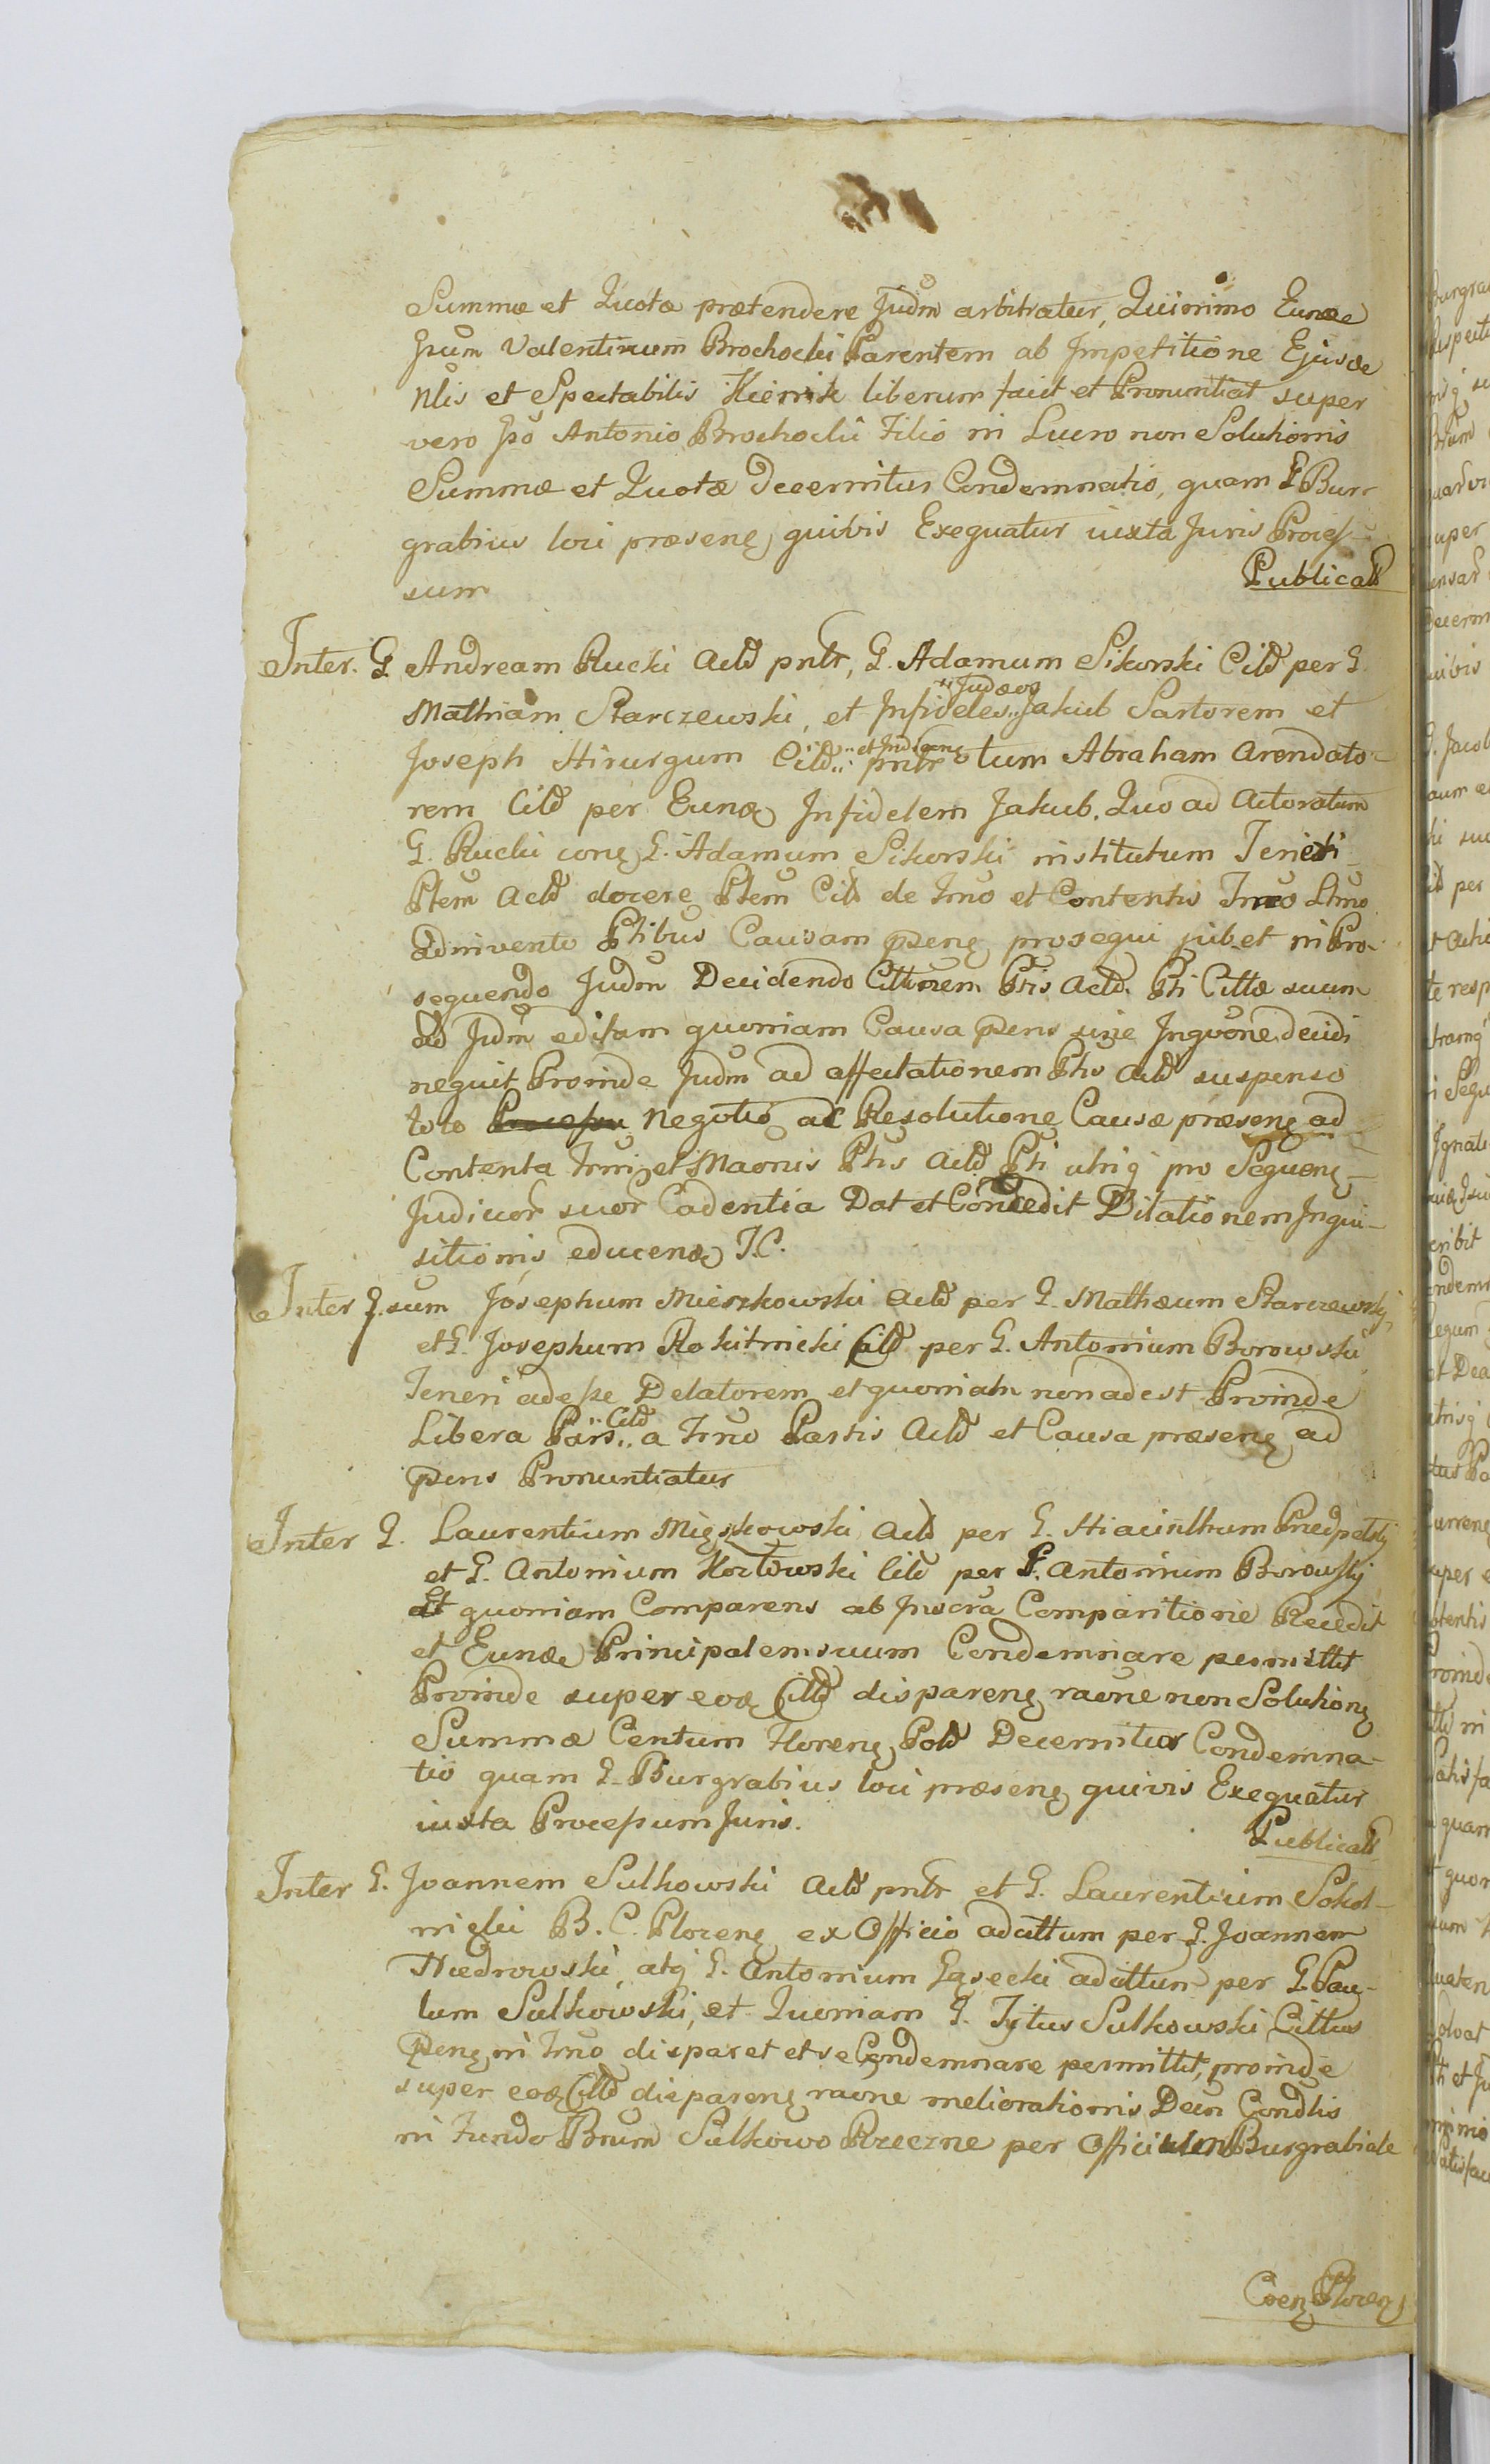 Summæ et Quotæ prætendere Judm arbitratur, Quinimo Eunde
Gsum Valentinum Brochocki Parentem ab Impetitione Ejusde
Nlis et Spectabilis Kiernik liberum facit et Pronuntiat super
vero Gso Antonio Brochocki Filio in Lucro non Solutionis
Summæ et Quotæ Decernitur Condemnatio, quam G Bur-
grabius loci præsens quivis Exequatur iuxta Juris Proces-
sum
Publicat
Inter G. Andream Rucki Actt pntr, G. Adamum Sikorski Citt per G.
Mathiam Starczewski, et Infideles Jakub Sartorem et
Judæos
Joseph Hirurgum Citt pntr tum Abraham Arendato-
rem Citt per Eund Infidelem Jakub. Quo ad Actoratum
G. Rucki contra G. Adamum Sikorski institutum Teneri
Ptem Actt docere Ptem Citt de Trno et Contentis Trno Ltmo
Adinvento Ptibus Causam præns prosequi jubet in Pro-
sequendo Judm Decidendo Cittnem Ptis Actt Pti Cittæ suum
Ad Judm editam quoniam Causa præns sine Inquone decidi
nequit Proinde Judm ad affectationem Ptis Actt suspenso
toto Negotio ac Resolutione Causæ præsens ad
Contenta Trni et Maonis Ptis Actt Pti utriq pro Sequen
Judicor suor Cadentia Dat et Concedit Dilationem Inqui-
sitionis educend J.C.
Inter G.sum Josephum Mierzkowski Actt per G. Mathæum Starczewski
et G. Josephum Rokitnicki Citt per G. Antonium Borowski
Teneri adesse Delatorem et quoniam non adest Proinde
Libera Pars Citt a Trno Partis Actt et Causa præsens ad
præns Pronuntiatur
Inter G. Laurentium Mięszkowski Actt per G. Hiacinthum Przedpełski
et G. Antonium Kozłowski Citt per G. Antonium Borowski
Et quoniam Comparens ab Inscra Comparitione Recedit
et Eunde Principalem suum Condemnare permittit
Proinde super eod Citt disparen raone non Solution
Summæ Centum Floren Pold Decernitur Condemna-
tio quam G. Burgrabius loci præsens quivis Exequatur
iuxta Processum Juris.
Publicat
Inter G. Joannem Sulkowski Actt pntr et G. Laurentium Sokol-
nicki B. C. Plocen ex Officio adcittum per G. Joannem
Niedrowski, atq G. Antonium Gąsecki adcittum per G. Pau-
lum Sulkowski, et Quoniam G. Tytus Sulkowski Cittus
præns in Trno disparet et se Condemnare permittit, proinde
super eod Citt disparen raone meliorationis Decn Condtis
in Fundo Bnum Sulkowo Rzeczne per Officium Burgrabiale
Coen Plocen